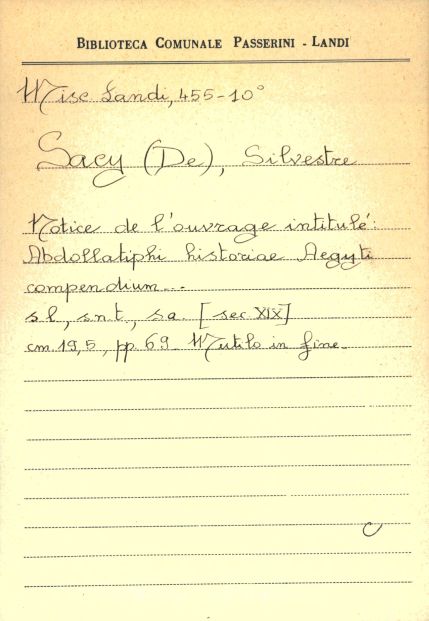 BIBLIOTECA COMUNALE PASSERINI - LANDI
Misc Landi, 455-10°
Sacy (De), Silvestre
Notice de l'ouvrage intitulé:
Abdollatiphi historiae Aegyti
compendium...
s l, s.n.t., s a. [sec XIX]
cm. 19,5, pp. 69. Mutilo in fine.
C